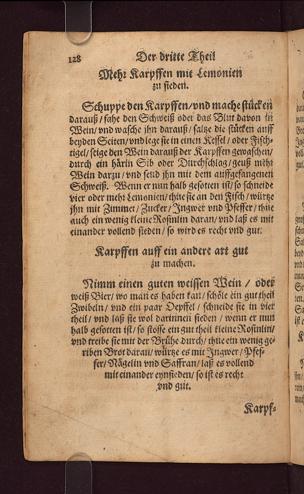 128 Der dritte Theil
Mehr Karpffen mit Lemonien
zu sieden.
Schuppe den Karpffen/vnd mache stücken
darauß/ fahe den Schweiß oder das Blut davon in
Wein/ vnd wasche ihn darauß/ saltze die stücken auff
beyden Seiten/ vnd lege sie in einen Kessel/ oder Fisch-
tigel/ seige den Wein darauß der Karpffen gewaschen/
durch ein härin Sib oder Durchschlag/ geuß mehr
Wein darzu/ vnd seud ihn mit dem auffgefangenen
Schweiß. Wenn er nun halb gesotten ist/ so schneide
vier oder mehr Lemonien/ thue sie an den Fisch/ würtze
ihn mit Zimmer/ Zucker/ Jngwer vnd Pfeffer/ thue
auch ein wenig kleine Rosinlin daran/ vnd laß es mit
einander vollend sieden/ so wird es recht vnd gut.
Karpffen auff ein andere art gut
zu machen.
Nimm einen guten weissen Wein / oder
weiß Bier/ wo man es haben kan/ schöle ein gut theil
Zwibeln/ vnd ein paar Oepffel/ schneide sie in vier
theil/ vnd laß sie wol darinnen sieden/ wenn er nun
halb gesotten ist/ so stosse ein gut theil kleine Rosinlin/
vnd treibe sie mit der Brühe durch/ thue ein wenig ge-
riben Brot daran/ würtze es mit Jngwer/ Pfef-
fer/ Nägelin vnd Saffran/ laß es vollend
mit einander eynsieden/ so ist es recht
vnd gut.
Karpf-